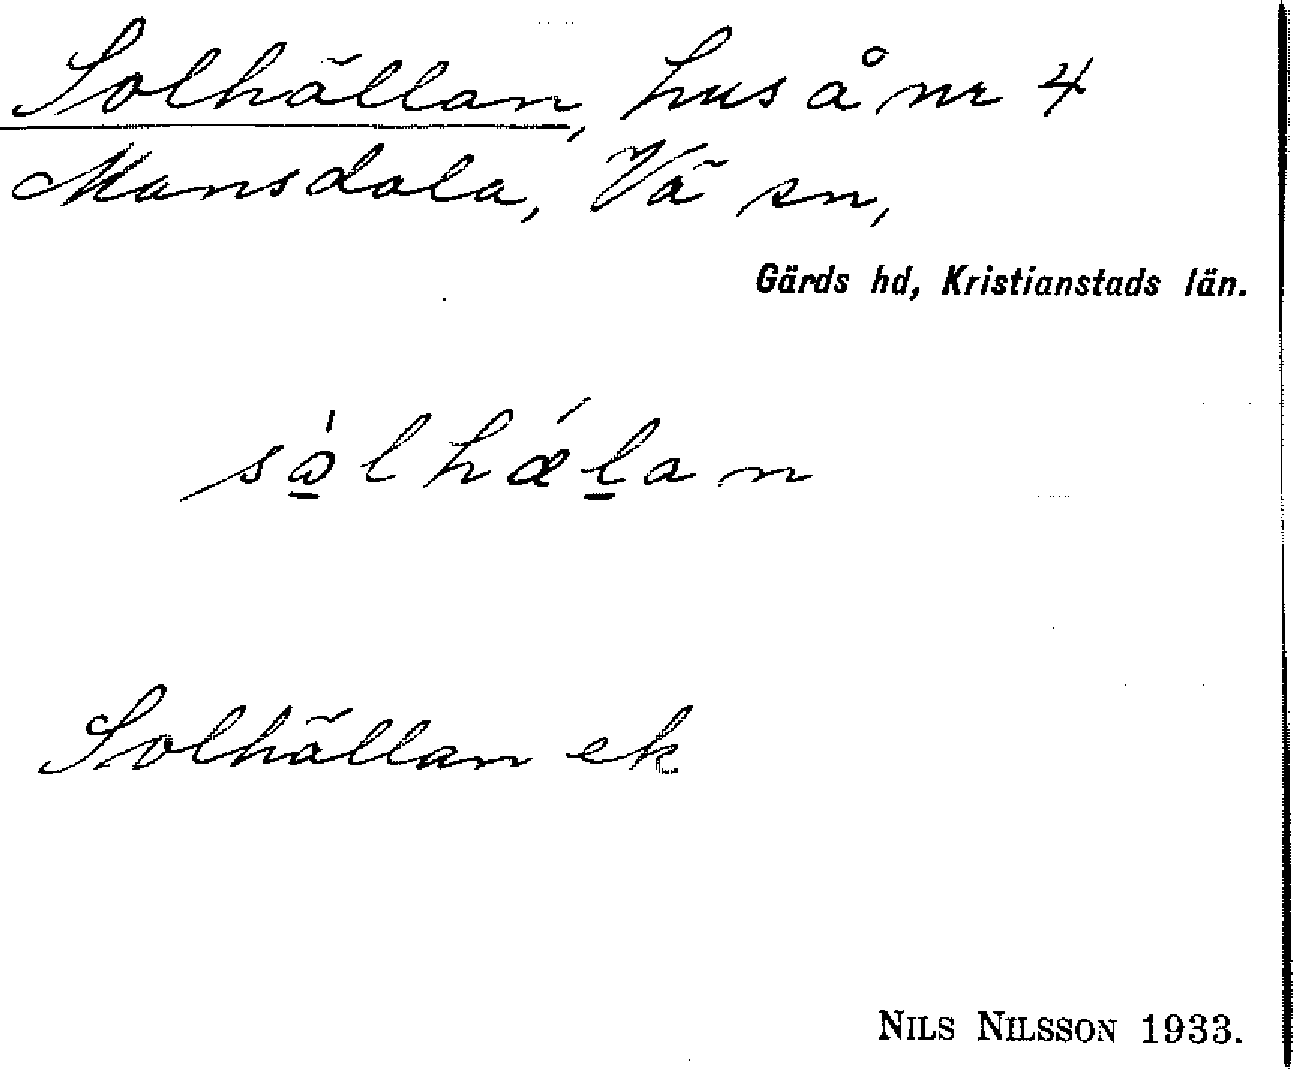 Solhällan, hus å nr 4
Mansdala, Vä sn,
Gärds hd, Kristianstads län.
Solhällan ek
NILS NILSSON 1933.